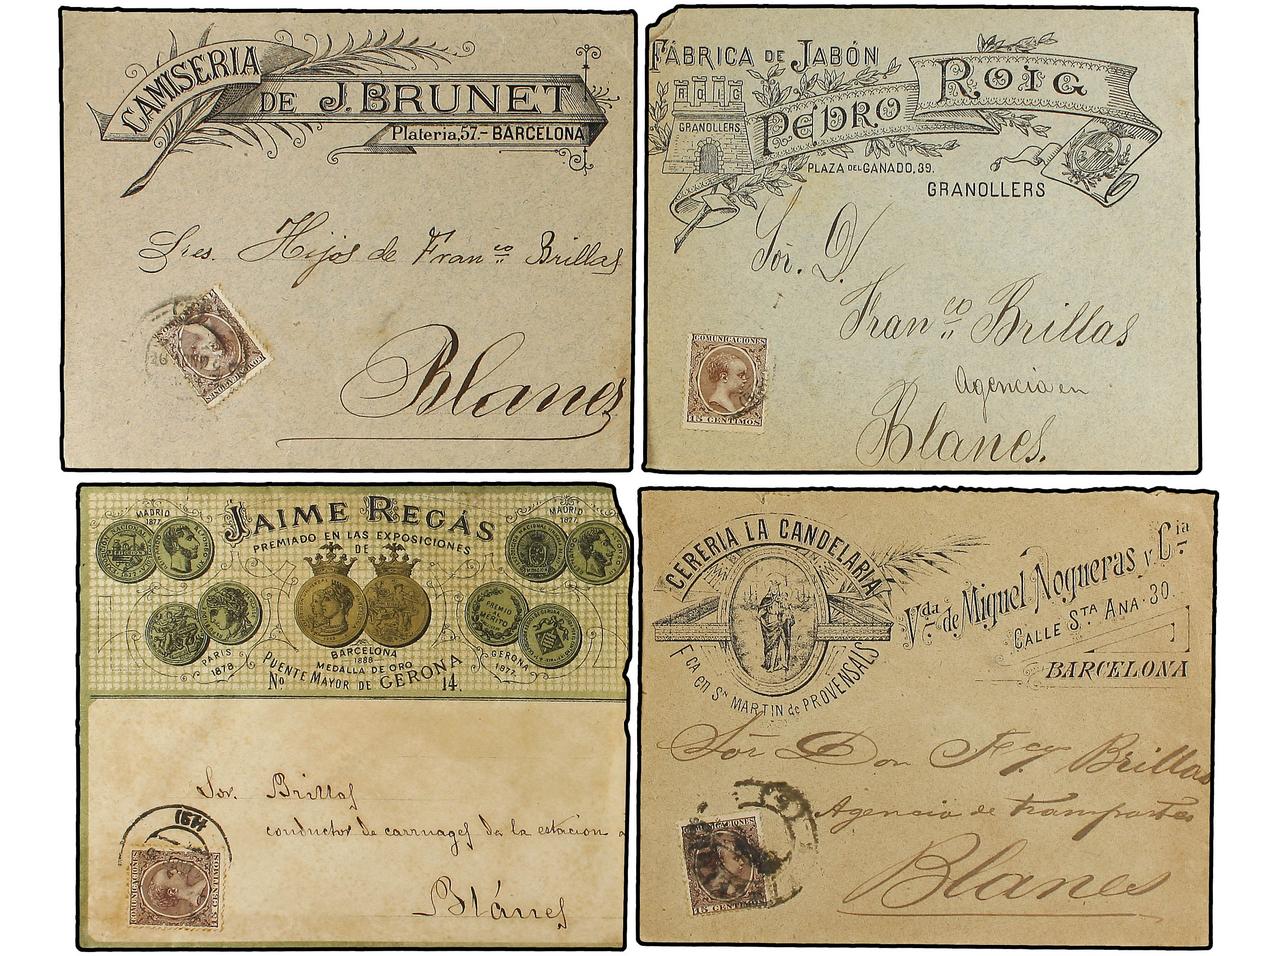 CAMISERIA
DE J. BRUNET
Plateria, 57.- BARCELONA
Sres. Hijos de Fran.co Brillas
Blanes
FÁBRICA DE JABÓN
PEDRO ROIG
GRANOLLERS
PLAZA DEL GANADO, 39.
GRANOLLERS
Sor. D.
Fran.co Brillas
Agencia en
Blanes.
COMUNICACIONES
15 CENTIMOS
JAIME REGÁS
PREMIADO EN LAS EXPOSICIONES
DE
MADRID
1877
MADRID
1877
PARIS
1878
BARCELONA
1888
MEDALLA DE ORO
PREMIO
AL
MERITO
GERONA
1877
PUENTE MAYOR DE GERONA
No 14.
Sor. Brillas
conductor de carruages da la estacion a
Blánes
COMUNICACIONES
15 CENTIMOS
CERERIA LA CANDELARIA
Fca en Sn MARTIN de PROVENSALS
Vda de Miguel Nogueras y Cia.
CALLE STA ANA. 30.
BARCELONA
Sor Don Fco Brillas
Agencia de trasportes
Blanes
COMUNICACIONES
15 CENTIMOS